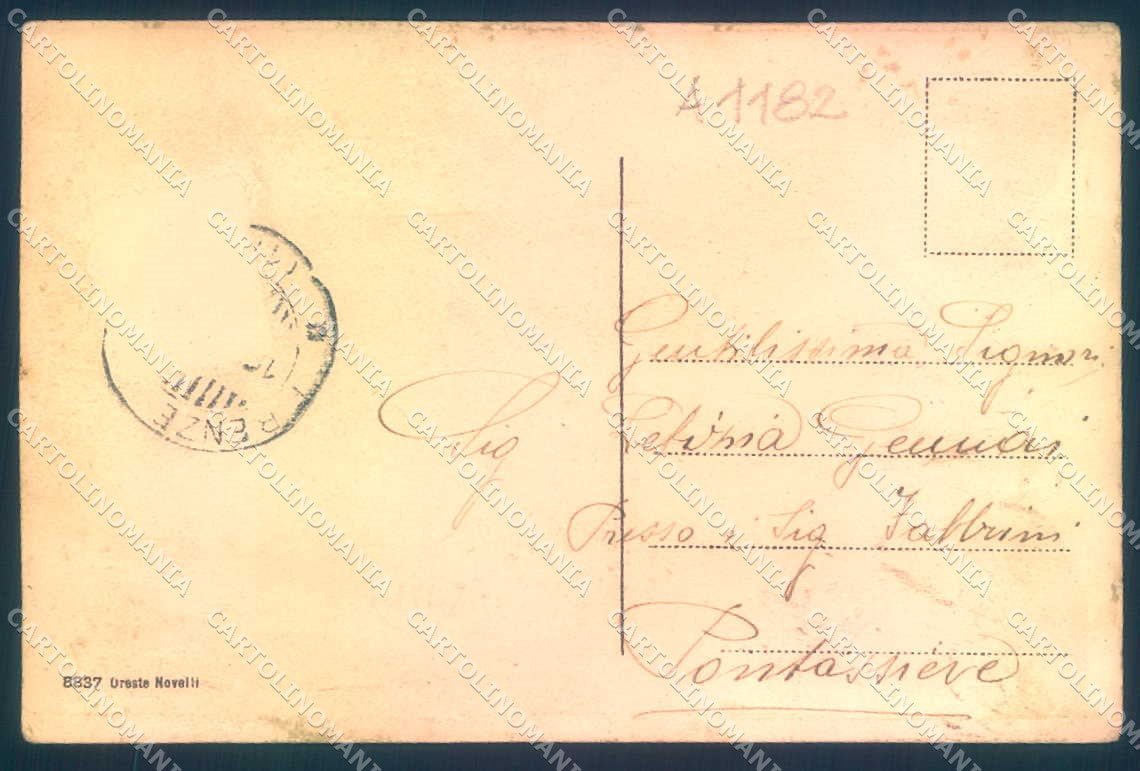 A1182
RENZE
Gentilissima Signori
Sig Letizia Gennai
Presso i Sig Fabbrini
Pontassieve
8837 Oreste Novelli
CARTOLINOMANIA